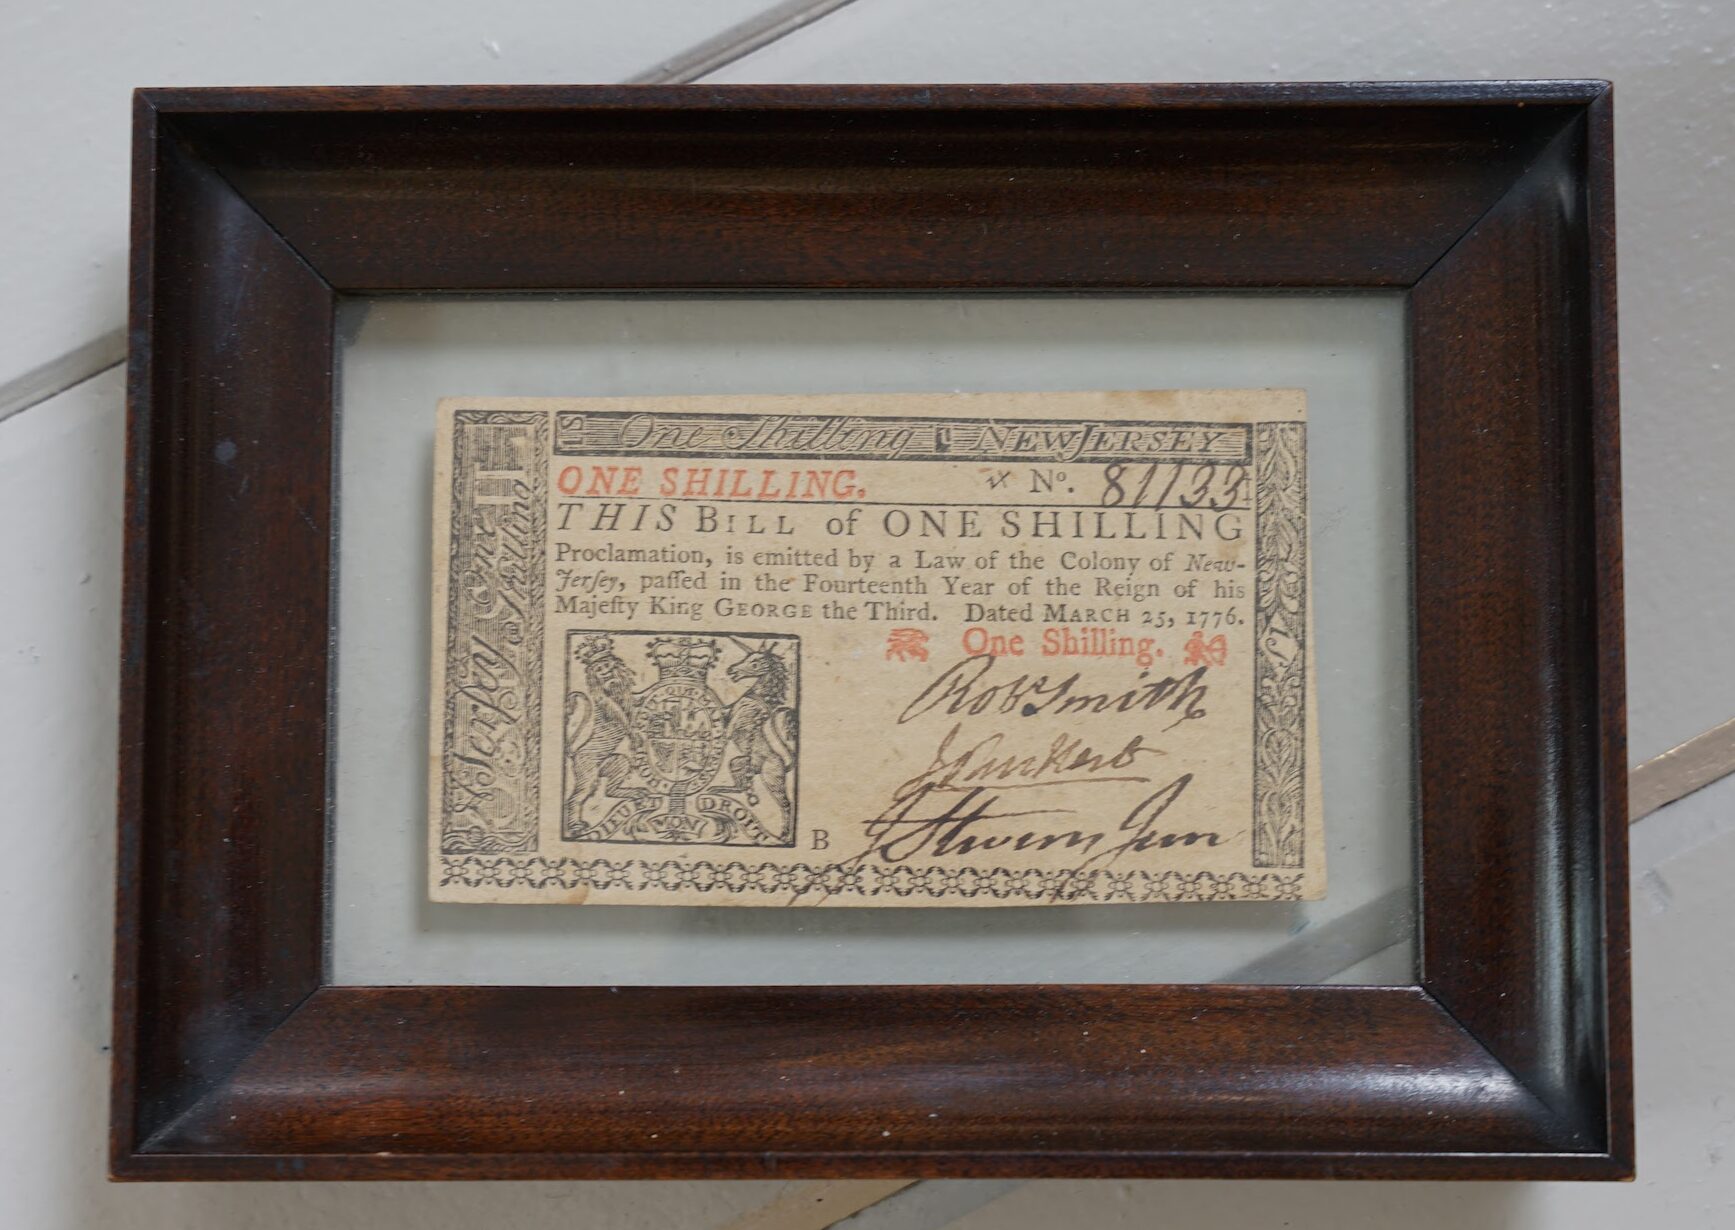 One Shilling
NEW JERSEY
1S
ONE SHILLING.
No. 81133
THIS BILL of ONE SHILLING
Proclamation, is emitted by a Law of the Colony of New-
Jerſey, paſſed in the Fourteenth Year of the Reign of his
Majeſty King GEORGE the Third. Dated MARCH 25, 1776.
One Shilling.
Robt Smith
J Stevens Jun
DIEU ET MON DROIT
B
Jerſey One
Shilling
1S